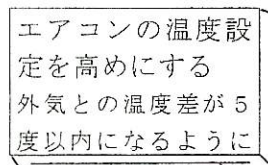 エアコンの温度設
定を高めにする
外気との温度差が５
度以内になるように